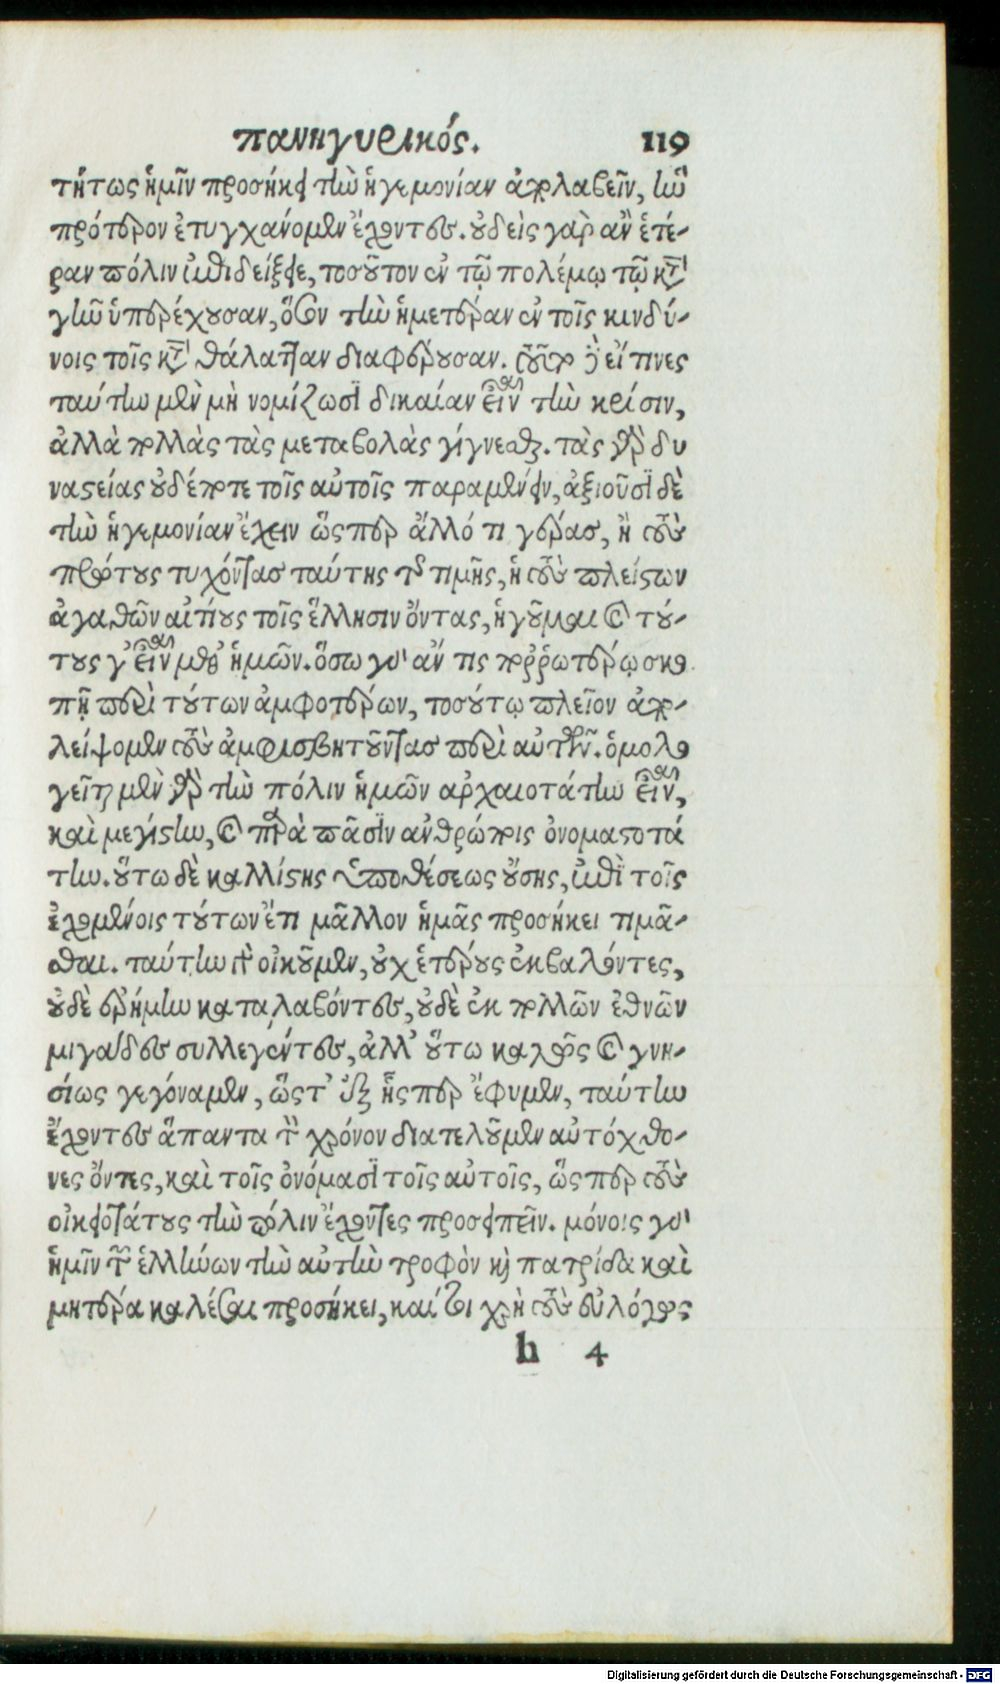 πανηγυρικός. 119
τήτως ἡμῖν προσήκει τὴν ἡγεμονίαν ἀπολαβεῖν, ἣν
πρότερον ἐτυγχάνομεν ἔχοντες. οὐδεὶς γὰρ ἂν ἑτέ-
ραν πόλιν ἐπιδείξειε, τοσοῦτον ἐν τῷ πολέμῳ τῷ κατὰ
γῆν ὑπερέχουσαν, ὅσον τὴν ἡμετέραν ἐν τοῖς κινδύ-
νοις τοῖς κατὰ θάλατταν διαφέρουσαν. τοῦτο δ' εἴ τινες
ταύτην μὲν μὴ νομίζωσι δικαίαν εἶναι τὴν κρίσιν,
ἀλλὰ πολλὰς τὰς μεταβολὰς γίγνεσθαι. τὰς γὰρ δυ
ναστείας οὐδέποτε τοῖς αὐτοῖς παραμένειν, ἀξιοῦσι δὲ
τὴν ἡγεμονίαν ἔχειν ὥσπερ ἄλλό τι γέρας, ἢ τοὺς
πρώτους τυχόντας ταύτης τῆς τιμῆς, ἢ τοὺς πλείστων
ἀγαθῶν αἰτίους τοῖς ἕλλησιν ὄντας, ἡγοῦμαι καὶ τού-
τους γ' εἶναι μεθ' ἡμῶν. ὅσῳ γὰρ ἄν τις πορρωτέρω σκο
πῇ περὶ τούτων ἀμφοτέρων, τοσούτῳ πλεῖον ἀπο-
λείψομεν τοὺς ἀμφισβητοῦντας περὶ αὐτῶν. ὁμολο
γεῖται μὲν γὰρ τὴν πόλιν ἡμῶν ἀρχαιοτάτην εἶναι,
καὶ μεγίστην, καὶ παρὰ πᾶσιν ἀνθρώποις ὀνομαστοτά
την. οὕτω δὲ καλλίστης ὑποθέσεως οὔσης, ἐπὶ τοῖς
ἐχομένοις τούτων ἔτι μᾶλλον ἡμᾶς προσήκει τιμᾶ-
σθαι. ταύτην γὰρ οἰκοῦμεν, οὐχ ἑτέρους ἐκβαλόντες,
οὐδὲ ἐρήμην καταλαβόντες, οὐδὲ ἐκ πολλῶν ἐθνῶν
μιγάδες συλλεγέντες, ἀλλ' οὕτω καλῶς καὶ γνη-
σίως γεγόναμεν, ὥστ' ἐξ ἧσπερ ἔφυμεν, ταύτην
ἔχοντες ἅπαντα τὸν χρόνον διατελοῦμεν αὐτόχθο-
νες ὄντες, καὶ τοῖς ὀνόμασι τοῖς αὐτοῖς, ὥσπερ τοὺς
οἰκειοτάτους τὴν πόλιν ἔχοντες προσειπεῖν. μόνοις γὰρ
ἡμῖν τῶν ἑλλήνων τὴν αὐτὴν τροφὸν καὶ πατρίδα καὶ
μητέρα καλέσαι προσήκει, καίτοι χρὴ τοὺς εὐλόγως
h 4
Digitalisierung gefördert durch die Deutsche Forschungsgemeinschaft - DFG